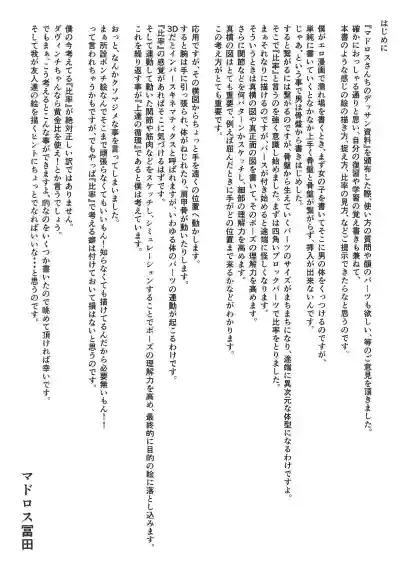 はじめに
『マドロスさんちのデッサン資料』を頒布した際、使い方の質問や顔のパーツも欲しい、等のご意見を頂きました。
確かにおっしゃる通りと思い、自分の復習や学習の覚え書きも兼ねて、
本書のような感じの絵の描き方、捉え方、比率の見方、などご提示できたらなと思うのです。
僕がエロ漫画で濡れ場を書くとき、まず女の子を書いてそこに男の体をくっつけるのですが、
単純に書いていくとなかなか上手く骨盤と骨盤が繋がらず、挿入が出来ないんです。
じゃあ、という事で男は骨盤から書きはじめました。
すると繋がるには繋がるのですが、骨盤から生えていくパーツのサイズがまちまちになり、途端に異次元な体型になるわけですよ。
そこで『比率』と言うのを強く意識し始めました。まずは四角いブロックパーツで比率をとりました。
まぁそれなりに描けるのですが、パースが付き始めると途端に怪しくなります。
そういうときは真横の図や真正面の図を書いて、そのポーズの理解力を高めます。
さらに関節などを何パターンかスケッチし、細部の理解力を高めます。
真横の図はとても重要で、例えば屈んだときに手がどの位置まで来るかなどがわかります。
この考え方がとても重要です。
応用ですが、その横図からちょっと手を遠くの位置へ動かします。
すると腕は手に引っ張られ、体がねじれたり、肩甲骨が動いたりします。
3Dだとインバースキネマティクスと呼ばれますが、いわゆる体のパーツの連動が起こるわけです。
『比率』の感覚があればそこに気づけるはずです。
そして連動して動いた関節や筋肉などをスケッチし、シミュレーションすることでポーズの理解力を高め、最終的に目的の絵に落とし込みます。
これを繰り返す事が『上達の循環』であると僕は考えています。
おっと、なんかクソマジメな事を言ってしまいました。
まぁ所詮ポンチ絵なんでそこまで頑張らなくてもいいもん!知らなくても描けてるんだから必要無いもん!!
って言われちゃうかもですが、でもやっぱ『比率』で考える癖は付けておいて損はないと思うのです。
僕の今考えてる『比率』が絶対正しい、訳ではありません。
ダヴィンチちゃんなら黄金比を使え!とか言うでしょう。
でもまぁ、こう考えるとこんな事ができますよ、的なのをいくつか書いたので眺めて頂ければ幸いです。
そして我が友人達の絵を描くヒントにちょっとでもなればいいな~と思うのです。
マドロス冨田